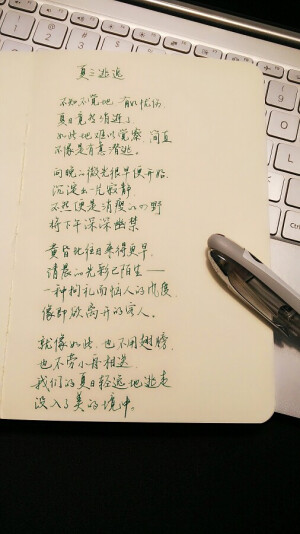 夏之逃逸
不知不觉地 有如忧伤
夏日竟然消逝了
如此地难以觉察 简直
不像是有意潜逃。
向晚的微光很早便开始
沉淀出一片寂静
不然便是消瘦的四野
将下午深深幽禁
黄昏比往日来得更早
清晨的光彩已陌生——
一种拘礼而恼人的风度
像即欲离开的客人。
就像如此 也不用翅膀
也不劳小舟相送
我们的夏日轻逸地逃去
没入了美的境中。